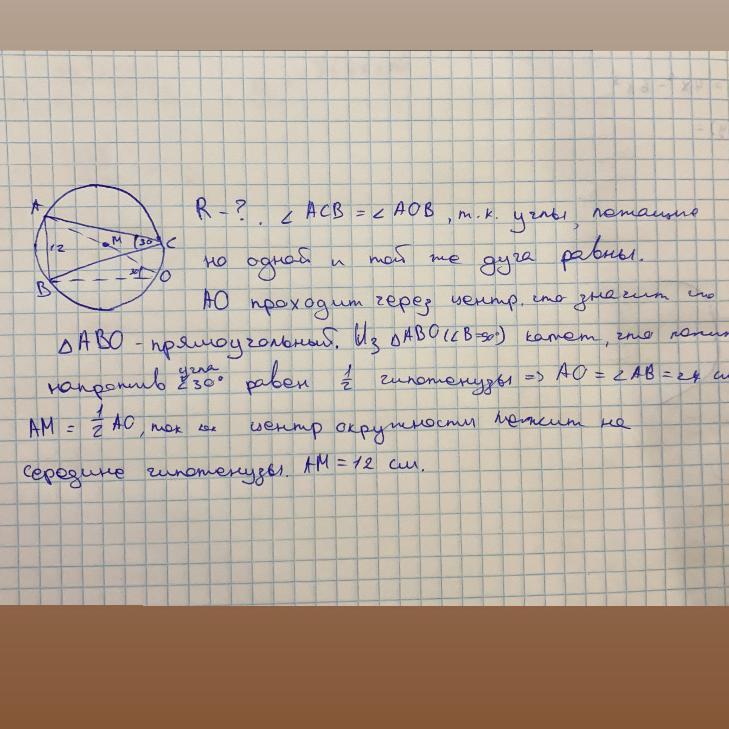 A
12
B
M
30°
C
O
R - ? . ∠ ACB = ∠ AOB, т.к. углы, лежащие
на одной и той же дуга равны.
AO проходит через центр, что значит что
△ABO - прямоугольный. Из △ABO (∠B=90°) катет, что
напротив угла ∠30° равен 1/2 гипотенузы => AO = 2AB = 24
AM = 1/2 AO, так как центр окружности лежит на
середине гипотенузы. AM = 12 см.